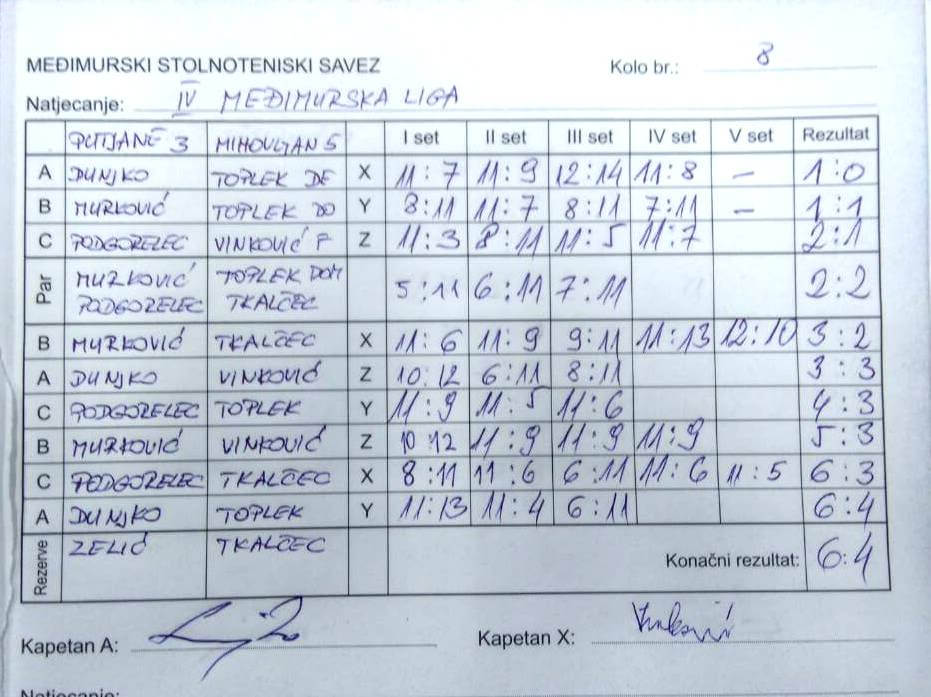 MEĐIMURSKI STOLNOTENISKI SAVEZ Kolo br.: 8
Natjecanje: IV MEĐIMURSKA LIGA
PUTJANE 3 MIHOVLJAN 5 I set II set III set IV set V set Rezultat
A DUNJKO TOPLEK DE X 11:7 11:9 12:14 11:8 – 1:0
B MURKOVIĆ TOPLEK DO Y 8:11 11:7 8:11 7:11 – 1:1
C PODGORELEC VINKOVIĆ F Z 11:3 8:11 11:5 11:7 2:1
Par MURKOVIĆ TOPLEK DOM 5:11 6:11 7:11 2:2
PODGORELEC TKALČEC
B MURKOVIĆ TKALČEC X 11:6 11:9 9:11 11:13 12:10 3:2
A DUNJKO VINKOVIĆ Z 10:12 6:11 8:11 3:3
C PODGORELEC TOPLEK Y 11:9 11:5 11:6 4:3
B MURKOVIĆ VINKOVIĆ Z 10:12 11:9 11:9 11:9 5:3
C PODGORELEC TKALČEC X 8:11 11:6 6:11 11:6 11:5 6:3
A DUNJKO TOPLEK Y 11:13 11:4 6:11 6:4
Rezerve ZELIĆ TKALČEC Konačni rezultat: 6:4
Kapetan A: Kapetan X:
Natjecanje: